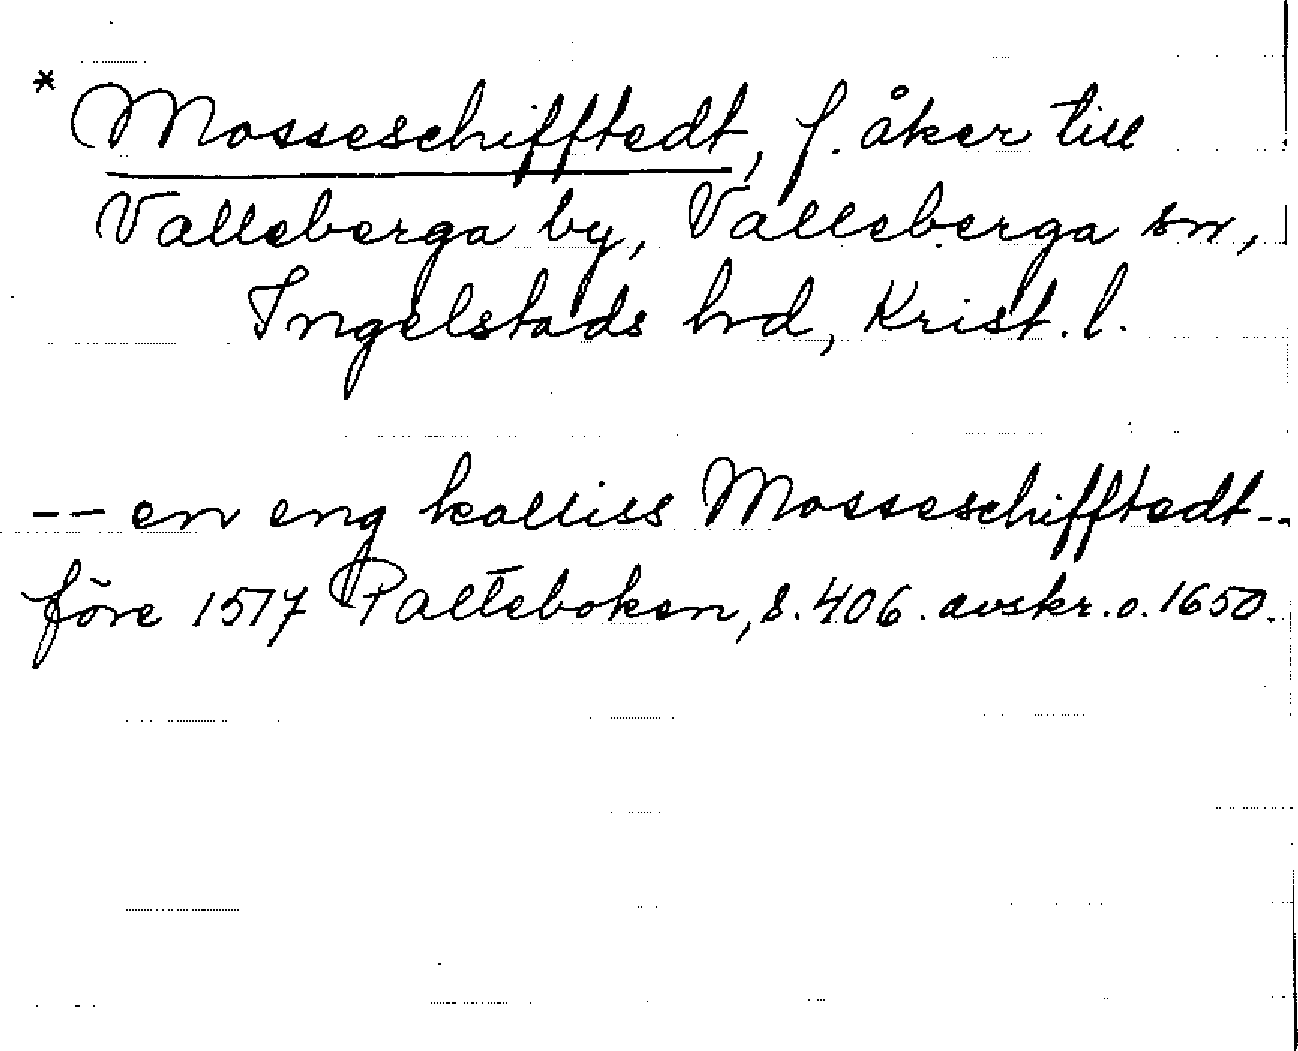 * Mosseschifftedt, f. åker till
Valleberga by, Valleberga sn,
Ingelstads hd, Krist. l.
-- en eng kalliss Mosseschifftedt--
före 1517 Palteboken, s. 406. avskr. o. 1650.